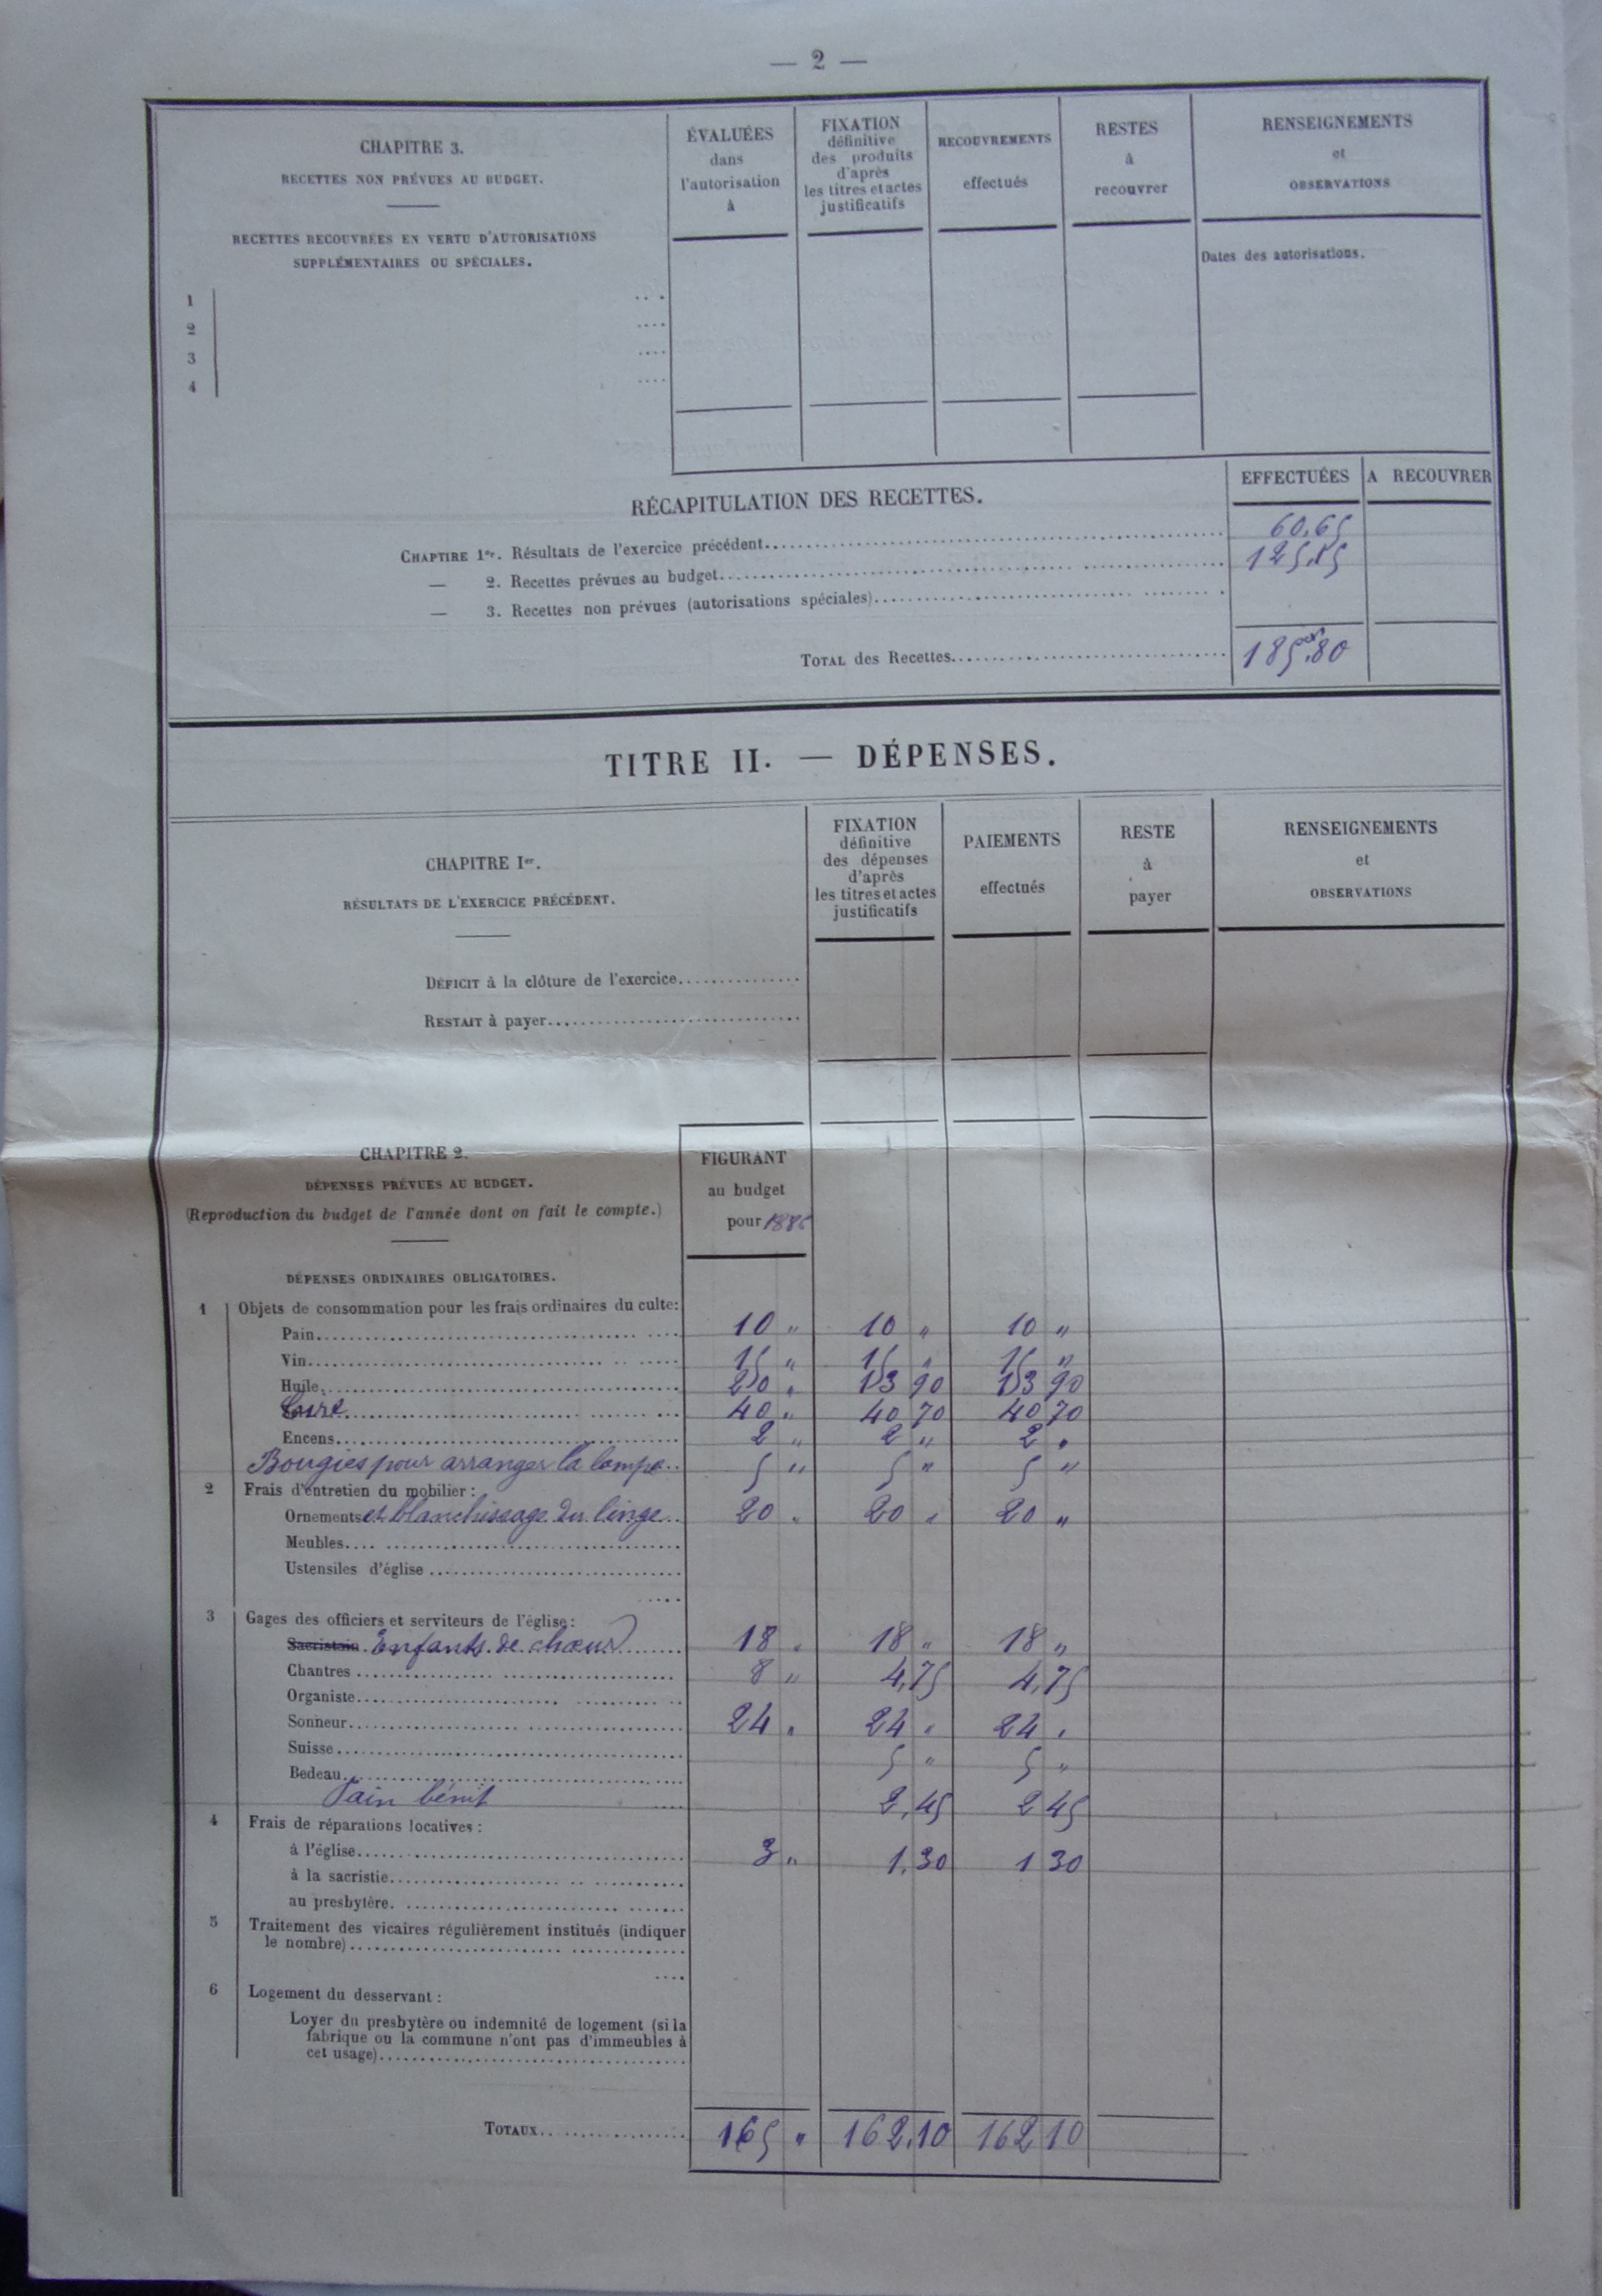 — 2 —
CHAPITRE 3.
RECETTES NON PRÉVUES AU BUDGET.
RECETTES RECOUVRÉES EN VERTU D'AUTORISATIONS
SUPPLÉMENTAIRES OU SPÉCIALES.
ÉVALUÉES
dans
l'autorisation
à
FIXATION
définitive
des produits
d'après
les titres et actes
justificatifs
RECOUVREMENTS
effectués
RESTES
à
recouvrer
RENSEIGNEMENTS
et
OBSERVATIONS
Dates des autorisations.
1
2
3
4
EFFECTUÉES A RECOUVRER
RÉCAPITULATION DES RECETTES.
CHAPTIRE 1er. Résultats de l'exercice précédent 60.65
— 2. Recettes prévues au budget 125.15
— 3. Recettes non prévues (autorisations spéciales)
TOTAL des Recettes 185.80
TITRE II. — DÉPENSES.
CHAPITRE Ier.
RÉSULTATS DE L'EXERCICE PRÉCÉDENT.
FIXATION
définitive
des dépenses
d'après
les titres et actes
justificatifs
PAIEMENTS
effectués
RESTE
à
payer
RENSEIGNEMENTS
et
OBSERVATIONS
DÉFICIT à la clôture de l'exercice
RESTAIT à payer
CHAPITRE 2.
DÉPENSES PRÉVUES AU BUDGET.
(Reproduction du budget de l'année dont on fait le compte.)
FIGURANT
au budget
pour
DÉPENSES ORDINAIRES OBLIGATOIRES.
1 Objets de consommation pour les frais ordinaires du culte:
Pain 10 " 10 " 10 "
Vin 15 " 15 " 15 "
Huile 20 " 13 90 13 90
Cire 40 " 40 70 40 70
Encens 2 " 2 " 2 "
Bougies pour arranger la lampe 5 " 5 " 5 "
2 Frais d'entretien du mobilier :
Ornements et blanchissage du linge 20 " 20 " 20 "
Meubles
Ustensiles d'église
3 Gages des officiers et serviteurs de l'église :
Sacristain Enfants de chœur 18 " 18 " 18 "
Chantres 8 " 4,75 4,75
Organiste
Sonneur 24 " 24 " 24 "
Suisse 5 " 5 "
Bedeau
Pain bénit 2,45 2 45
4 Frais de réparations locatives :
à l'église 3 " 1,30 1 30
à la sacristie
au presbytère
5 Traitement des vicaires régulièrement institués (indiquer
le nombre)
6 Logement du desservant :
Loyer du presbytère ou indemnité de logement (si la
fabrique ou la commune n'ont pas d'immeubles à
cet usage)
TOTAUX 165 " 162,10 162 10